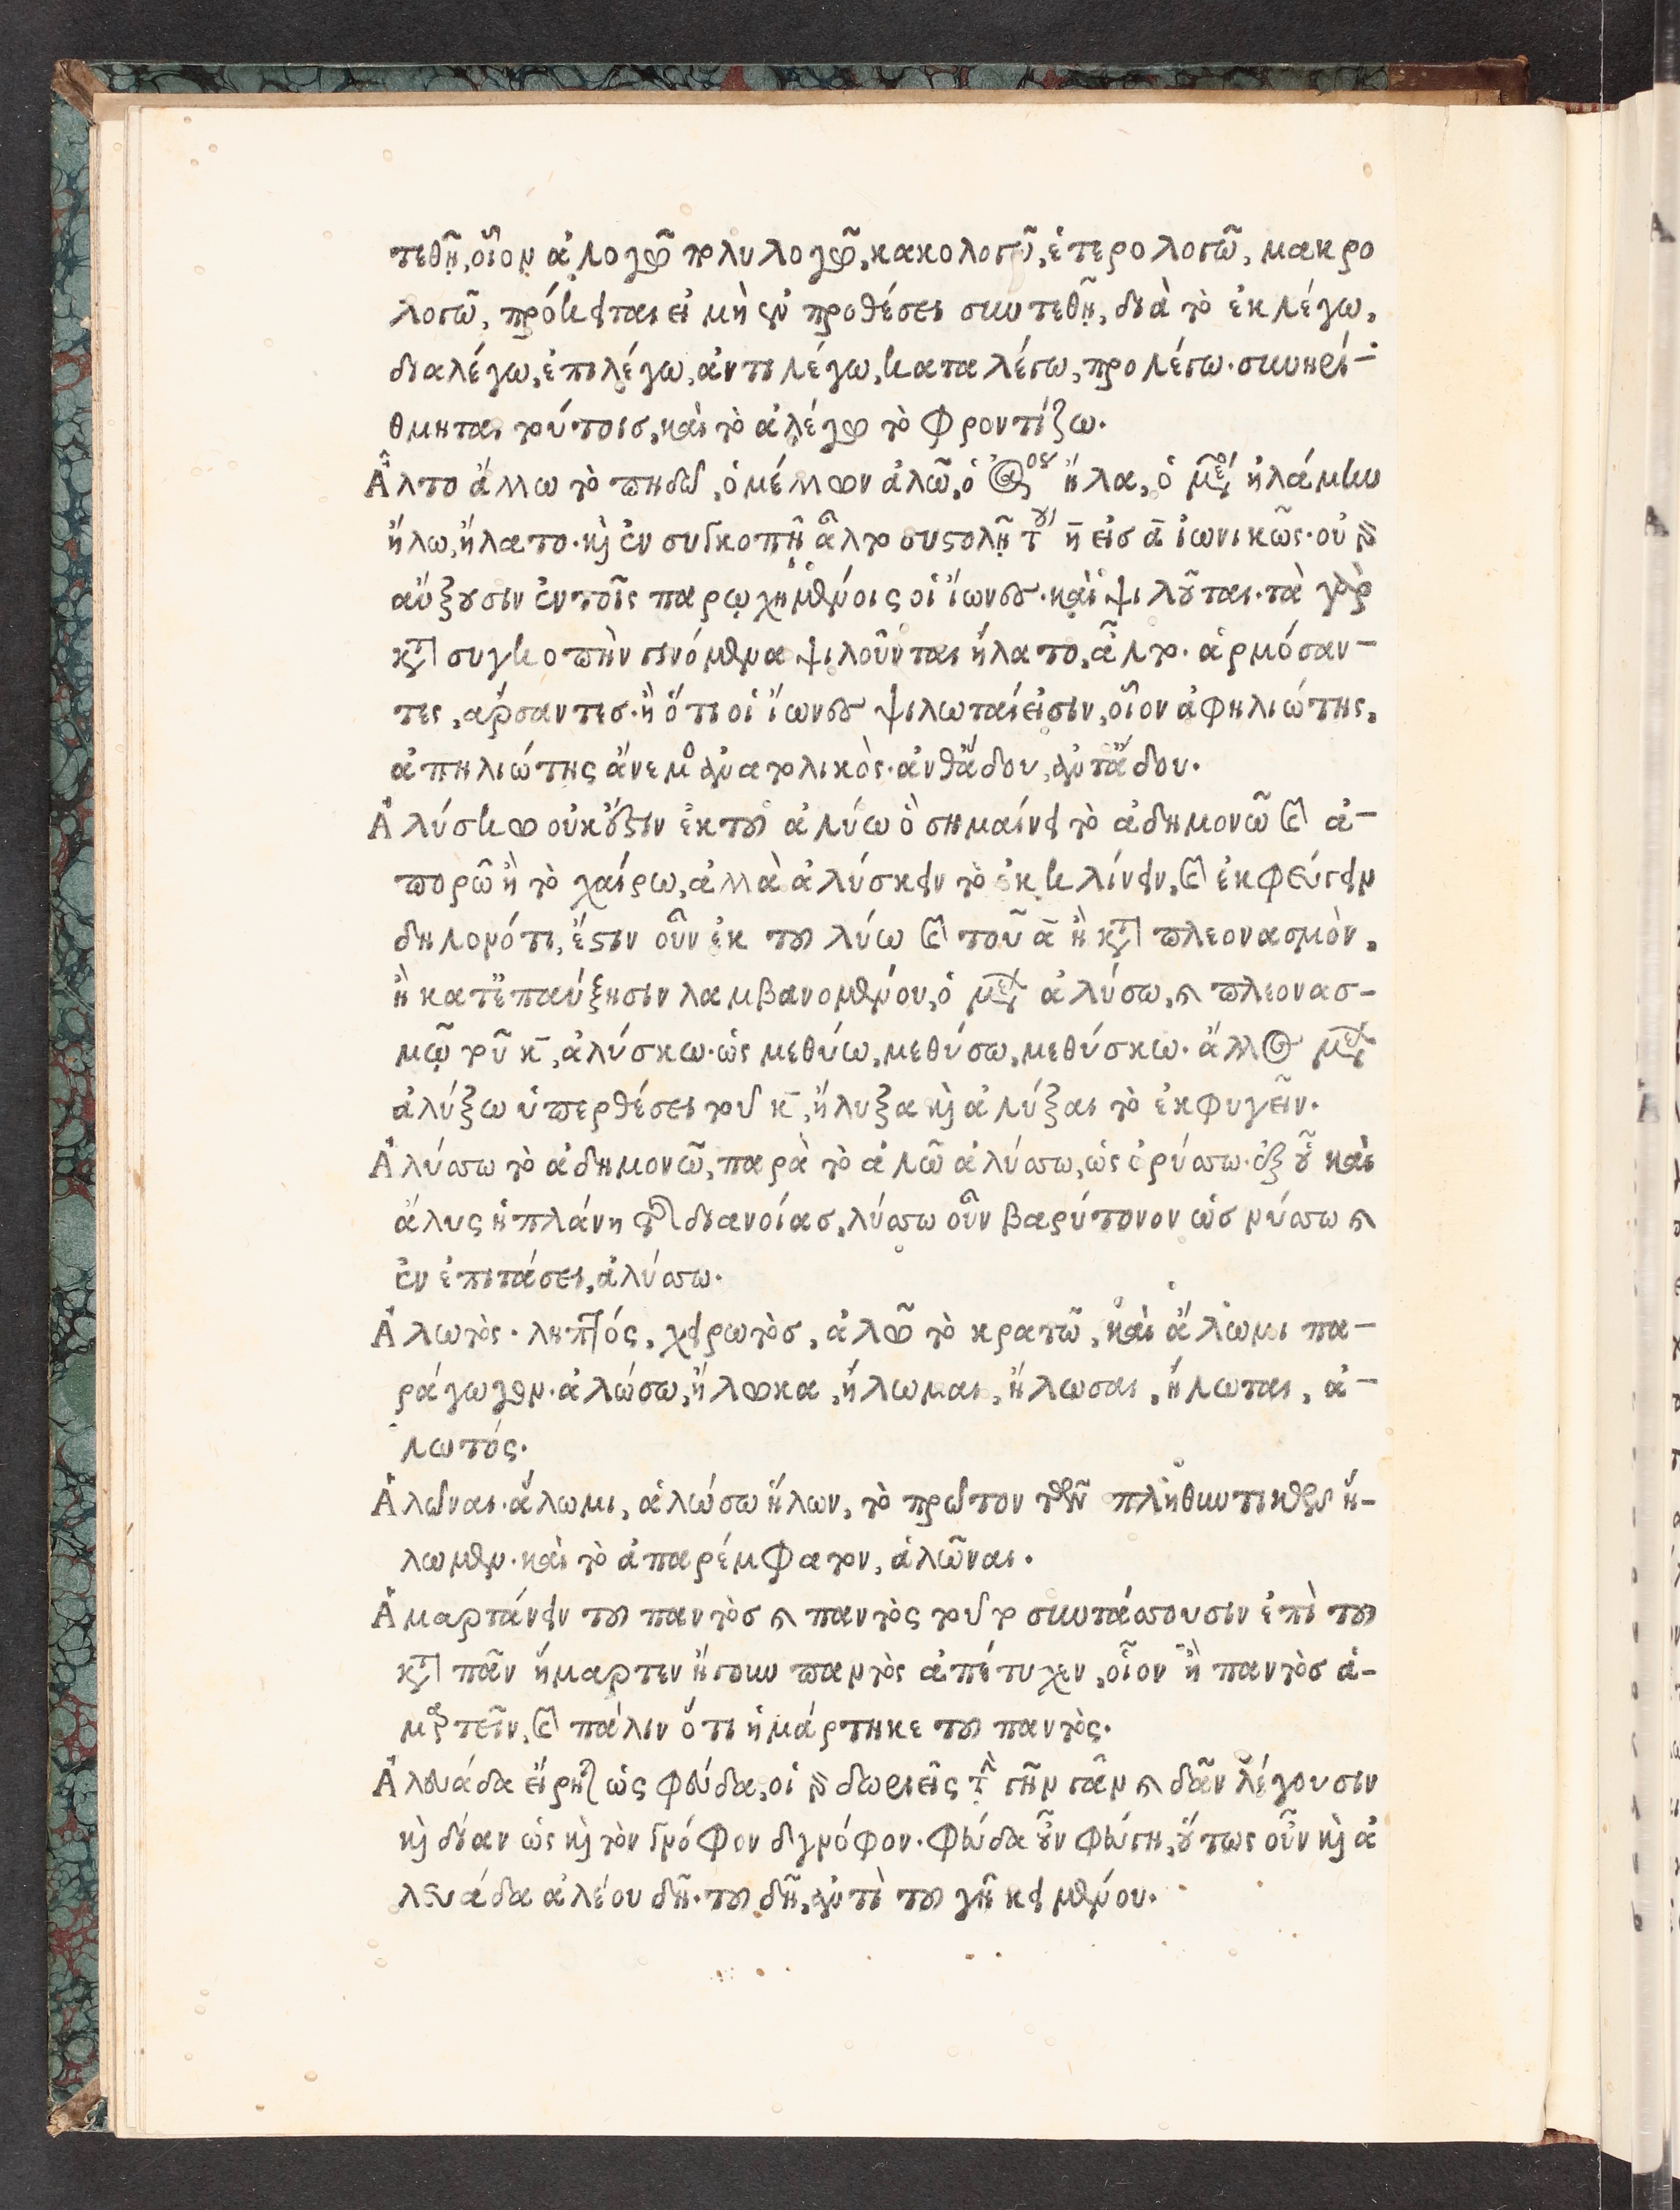 τεθῇ, οἷον ἀλογῶ πολυλογῶ, κακολογῶ, ἑτερολογῶ, μακρο
λογῶ, πρόκειται εἰ μὴ ἐν προθέσει συντεθῇ, διὰ τὸ ἐκλέγω,
διαλέγω, ἐπιλέγω, ἀντιλέγω, καταλέγω, προλέγω. συνηρί-
θμηται τούτοις, καὶ τὸ ἀλέγω τὸ φροντίζω.
Ἆλτο ἅλλω τὸ πηδῶ, ὁ μέλλων ἁλῶ, ὁ ἀος ἥλα, ὁ μέσος ἡλάμην
ἥλω, ἥλατο. καὶ ἐν συγκοπῇ ἆλτο συστολῇ τοῦ η εἰς α ἰωνικῶς. οὐ γὰρ
αὔξουσιν ἐν τοῖς παρῳχημένοις οἱ ἴωνες. καὶ ψιλοῦται. τὰ γὰρ
κατὰ συγκοπὴν γινόμενα ψιλοῦνται ἥλατο, ἆλτο. ἁρμόσαν-
τες, ἄρσαντες. ἢ ὅτι οἱ ἴωνες ψιλωταί εἰσιν, οἷον ἀφηλιώτης,
ἀπηλιώτης ἄνεμος ἀνατολικὸς. ἀνθάδου, ἀντάδου.
Ἀλύσκω οὐκ ἔστιν ἐκ τοῦ ἀλύω ὃ σημαίνει τὸ ἀδημονῶ καὶ ἀ-
πορῶ ἢ τὸ χαίρω, ἀλλὰ ἀλύσκειν τὸ ἐκκλίνειν, καὶ ἐκφεύγειν
δηλονότι, ἔστιν οὖν ἐκ τοῦ λύω καὶ τοῦ α ἢ κατὰ πλεονασμὸν,
ἢ κατ' ἐπαύξησιν λαμβανομένου, ὁ μέλλων ἀλύσω, καὶ πλεονασ-
μῷ τοῦ κ, ἀλύσκω. ὡς μεθύω, μεθύσω, μεθύσκω. ἄλλος μέλλων
ἀλύξω ὑπερθέσει τοῦ κ, ἤλυξα καὶ ἀλύξαι τὸ ἐκφυγεῖν.
Ἀλύσσω τὸ ἀδημονῶ, παρὰ τὸ ἀλῶ ἀλύσσω, ὡς ὀρύσσω. ἐξ οὗ καὶ
ἄλυς ἡ πλάνη τῆς διανοίας, λύσσω οὖν βαρύτονον ὡς νύσσω καὶ
ἐν ἐπιτάσει, ἀλύσσω.
Ἁλωτὸς. ληπτός, χειρωτὸς, ἁλῶ τὸ κρατῶ, καὶ ἅλωμι πα-
ράγωγον. ἁλώσω, ἥλωκα, ἥλωμαι, ἥλωσαι, ἥλωται, ἁ-
λωτός.
Ἁλῶναι. ἅλωμι, ἁλώσω ἥλων, τὸ πρῶτον τῶν πληθυντικῶν ἥ-
λωμεν. καὶ τὸ ἀπαρέμφατον, ἁλῶναι.
Ἁμαρτάνειν τοῦ παντὸς καὶ παντὸς τοῦ τ συντάσσουσιν ἐπὶ τοῦ
κατὰ πᾶν ἥμαρτεν ἤγουν παντὸς ἀπέτυχεν, οἷον ἢ παντὸς ἁ-
μαρτεῖν, καὶ πάλιν ὅτι ἡμάρτηκε τοῦ παντὸς.
Ἀλευάδα εἴρηται ὡς φεύδα, οἱ γὰρ δωριεῖς τὴν γῆν γᾶν καὶ δᾶν λέγουσιν
καὶ δύαν ὡς καὶ τὸν γνόφον δνόφον. φεύδα οὖν φεύγη, οὕτως οὖν καὶ ἀ
λευάδα ἀλέου δῆ. τοῦ δῆ, ἀντὶ τοῦ γῆ κειμένου.